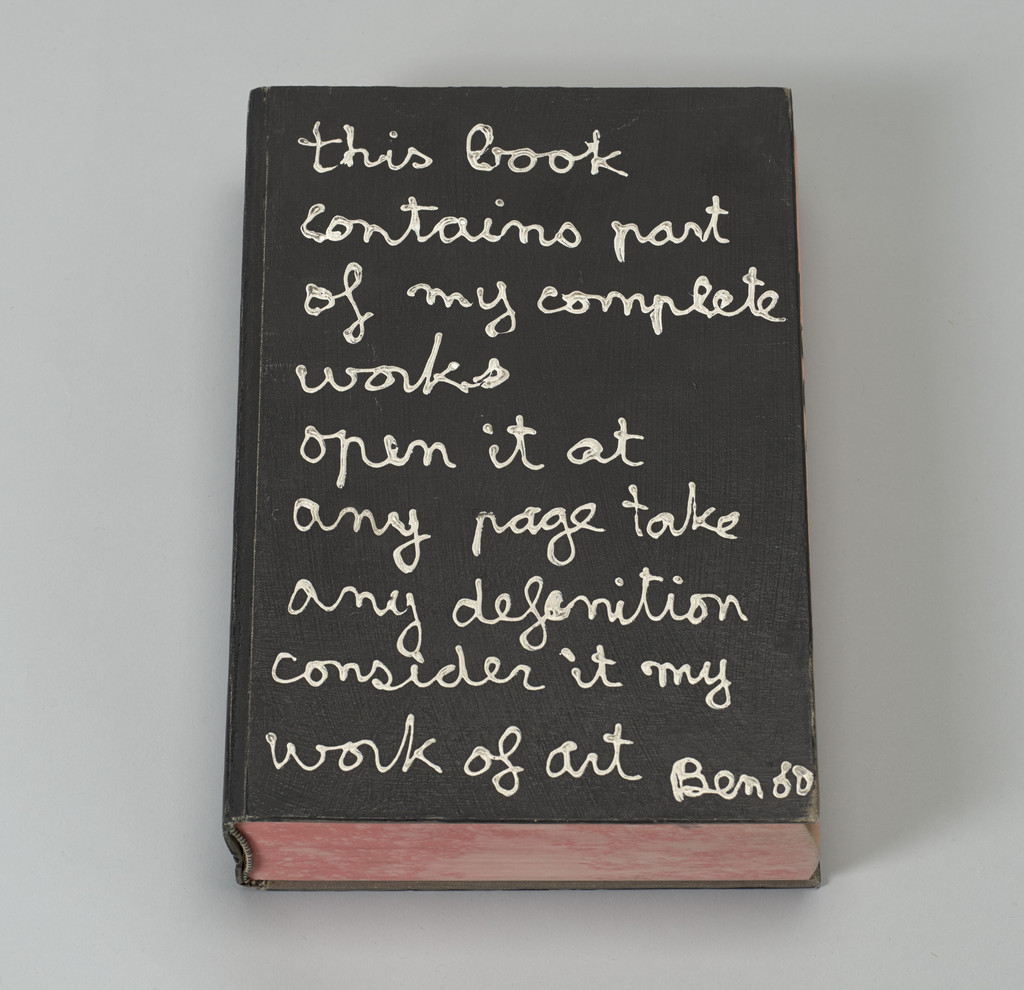 this book
contains part
of my complete
works
open it at
any page take
any defenition
consider it my
work of art
Ben